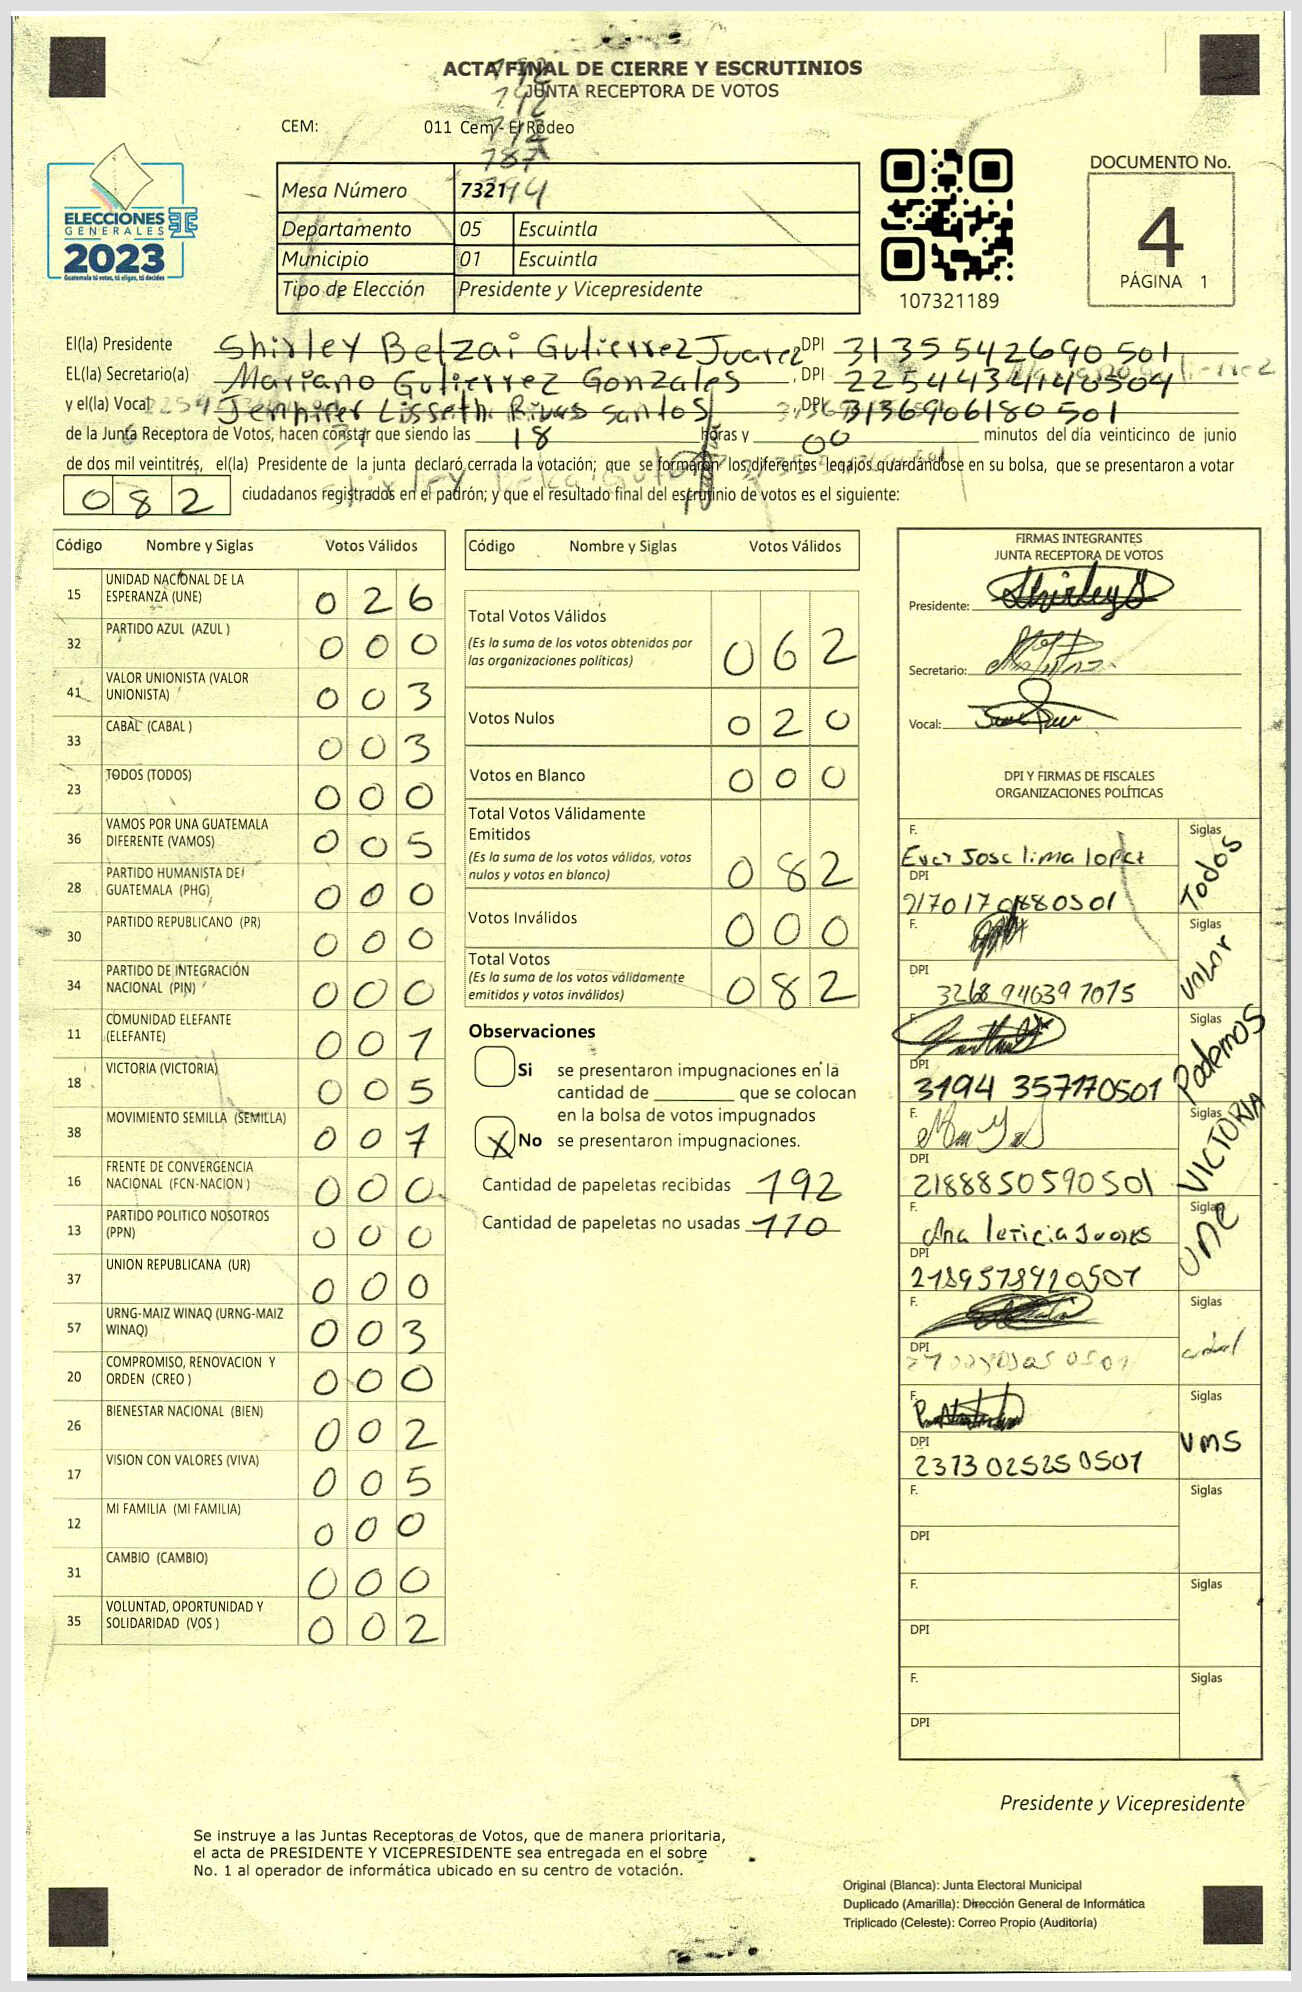 ACTA FINAL DE CIERRE Y ESCRUTINIOS
JUNTA RECEPTORA DE VOTOS
CEM: 011 Cem - El Rodeo
787
794
ELECCIONES
GENERALES
2023
Guatemala tú votas, tú eliges, tú decides
Mesa Número 7321
Departamento 05 Escuintla
Municipio 01 Escuintla
Tipo de Elección Presidente y Vicepresidente
107321189
DOCUMENTO No.
4
PÁGINA 1
El(la) Presidente Shirley Betzai Gutierrez Juarez DPI 3135542690501
EL(la) Secretario(a) Mariano Gutierrez Gonzales , DPI 2254434140504
y el(la) Vocal Jennifer Lisseth Rivas santos DPI 3136906180501
de la Junta Receptora de Votos, hacen constar que siendo las 18 horas y 00 minutos del día veinticinco de junio
de dos mil veintitrés, el(la) Presidente de la junta declaró cerrada la votación; que se formaron los diferentes legajos guardándose en su bolsa, que se presentaron a votar
082 ciudadanos registrados en el padrón; y que el resultado final del escrutinio de votos es el siguiente:
Código Nombre y Siglas Votos Válidos
15 UNIDAD NACIONAL DE LA
ESPERANZA (UNE) 026
32 PARTIDO AZUL (AZUL ) 000
41 VALOR UNIONISTA (VALOR
UNIONISTA) 003
33 CABAL (CABAL ) 003
23 TODOS (TODOS) 000
36 VAMOS POR UNA GUATEMALA
DIFERENTE (VAMOS) 005
28 PARTIDO HUMANISTA DE
GUATEMALA (PHG) 000
30 PARTIDO REPUBLICANO (PR) 000
34 PARTIDO DE INTEGRACIÓN
NACIONAL (PIN) 000
11 COMUNIDAD ELEFANTE
(ELEFANTE) 001
18 VICTORIA (VICTORIA) 005
38 MOVIMIENTO SEMILLA (SEMILLA) 007
16 FRENTE DE CONVERGENCIA
NACIONAL (FCN-NACION ) 000
13 PARTIDO POLITICO NOSOTROS
(PPN) 000
37 UNION REPUBLICANA (UR) 000
57 URNG-MAIZ WINAQ (URNG-MAIZ
WINAQ) 003
20 COMPROMISO, RENOVACION Y
ORDEN (CREO ) 000
26 BIENESTAR NACIONAL (BIEN) 002
17 VISION CON VALORES (VIVA) 005
12 MI FAMILIA (MI FAMILIA) 000
31 CAMBIO (CAMBIO) 000
35 VOLUNTAD, OPORTUNIDAD Y
SOLIDARIDAD (VOS ) 002
Código Nombre y Siglas Votos Válidos
Total Votos Válidos
(Es la suma de los votos obtenidos por
las organizaciones políticas) 062
Votos Nulos 020
Votos en Blanco 000
Total Votos Válidamente
Emitidos
(Es la suma de los votos válidos, votos
nulos y votos en blanco) 082
Votos Inválidos 000
Total Votos
(Es la suma de los votos válidamente
emitidos y votos inválidos) 082
Observaciones
Si se presentaron impugnaciones en la
cantidad de ________ que se colocan
en la bolsa de votos impugnados
X No se presentaron impugnaciones.
Cantidad de papeletas recibidas 192
Cantidad de papeletas no usadas 110
FIRMAS INTEGRANTES
JUNTA RECEPTORA DE VOTOS
Presidente: Shirley G
Secretario:
Vocal:
DPI Y FIRMAS DE FISCALES
ORGANIZACIONES POLÍTICAS
F. Siglas
Ever Jose lima lopez Todos
DPI
2170170880501
F. Siglas
Valor
DPI
3268946397075
F. Siglas
Podemos
DPI
3194357170501
F. Siglas
VICTORIA
DPI
2188850590501
F. Siglas
Ana leticia Juares UNE
DPI
2189578920501
F. Siglas
DPI
F. Siglas
VMS
DPI
2373025250501
F. Siglas
DPI
F. Siglas
DPI
F. Siglas
DPI
Presidente y Vicepresidente
Se instruye a las Juntas Receptoras de Votos, que de manera prioritaria,
el acta de PRESIDENTE Y VICEPRESIDENTE sea entregada en el sobre
No. 1 al operador de informática ubicado en su centro de votación.
Original (Blanca): Junta Electoral Municipal
Duplicado (Amarilla): Dirección General de Informática
Triplicado (Celeste): Correo Propio (Auditoría)